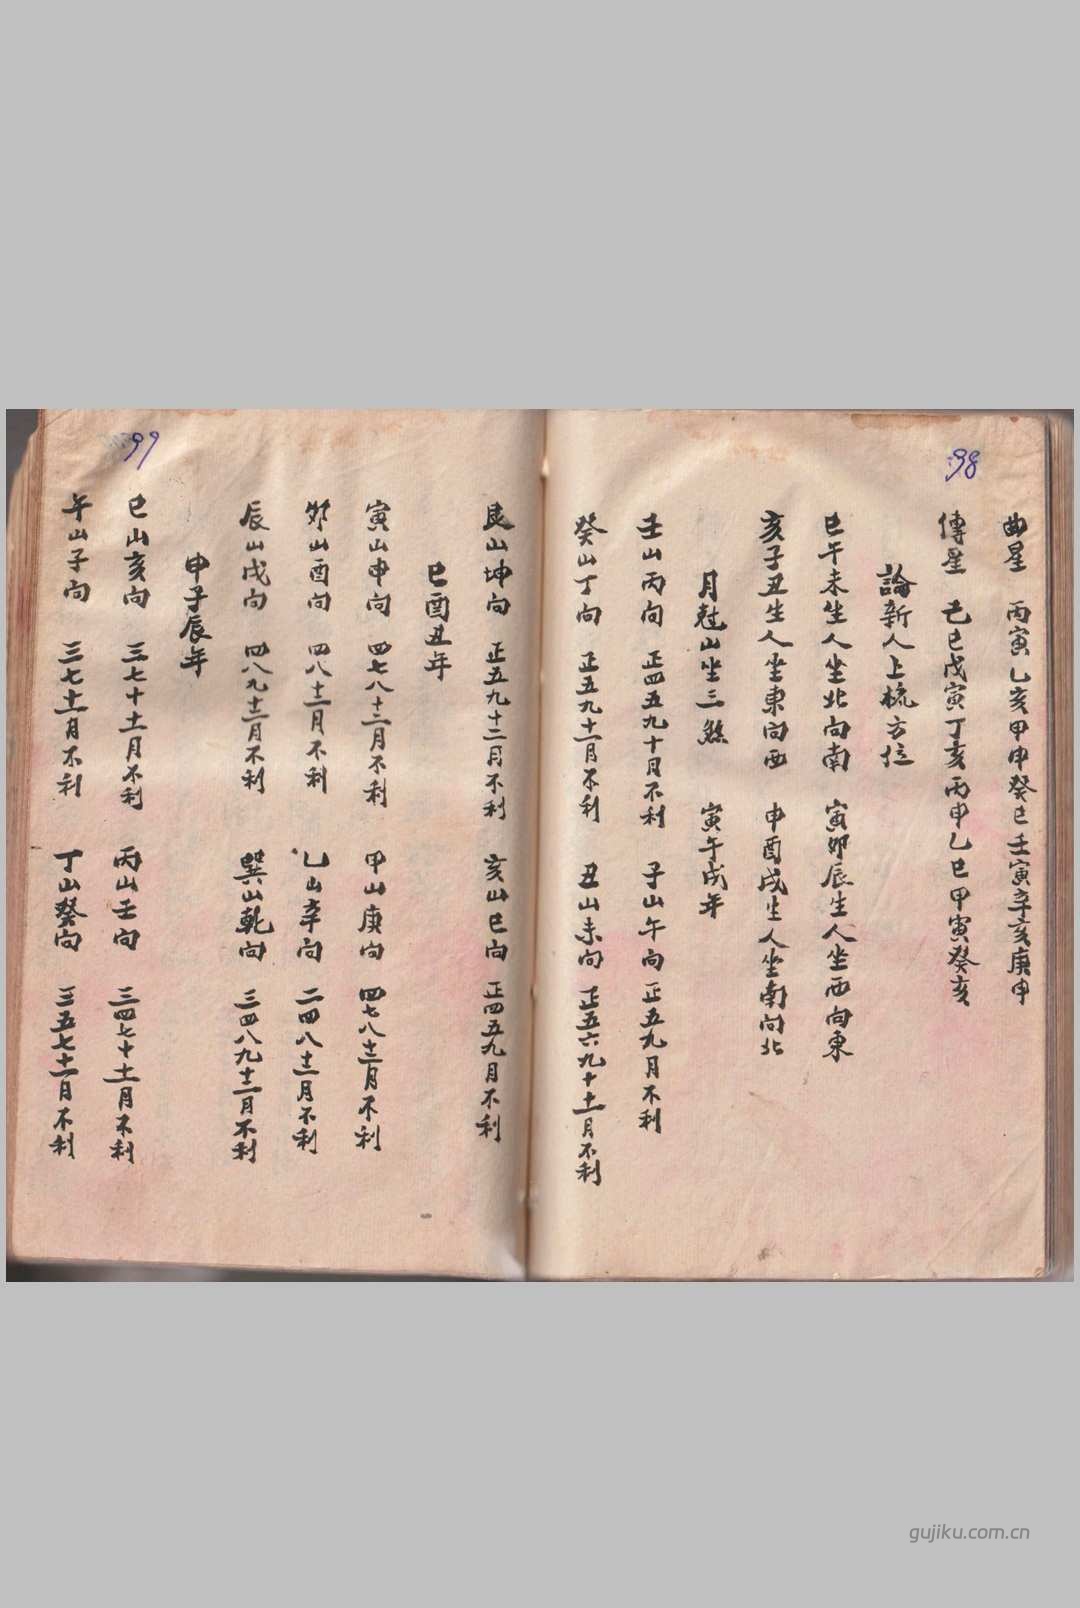 98
曲星　丙寅乙亥甲申癸巳壬寅辛亥庚申
傳星　己巳戊寅丁亥丙申乙巳甲寅癸亥
論新人上梳方位
巳午未生人坐北向南　寅卯辰生人坐西向東
亥子丑生人坐東向西　申酉戌生人坐南向北
月尅山坐三煞　寅午戌年
壬山丙向　正四五九十月不利　子山午向　正五九月不利
癸山丁向　正五九十二月不利　丑山未向　正五六九十十二月不利
99
艮山坤向　正五九十二月不利　亥山巳向　正四五九月不利
巳酉丑年
寅山申向　四七八十二月不利　甲山庚向　四七八十二月不利
卯山酉向　四八十二月不利　乙山辛向　二四八十二月不利
辰山戌向　四八九十二月不利　巽山乾向　三四八九十二月不利
申子辰年
巳山亥向　三七十十一月不利　丙山壬向　三四七十十一月不利
午山子向　三七十一月不利　丁山癸向　三五七十一月不利
gujiku.com.cn